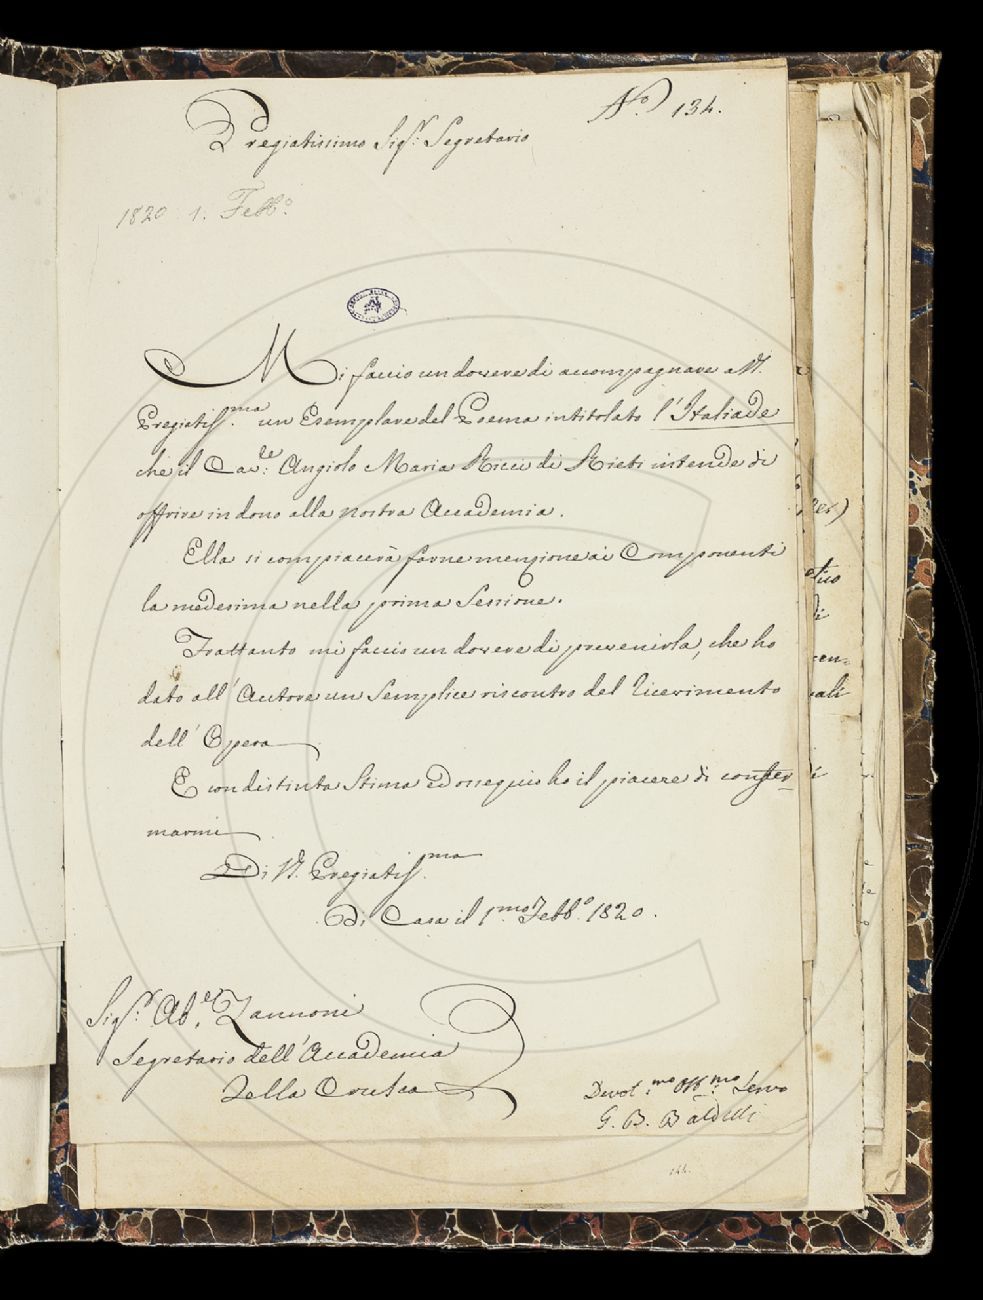 N.o 134.
Pregiatissimo Sig.r Segretario
1820 1. Febb.o
Mi faccio un dovere di accompagnare a V.
Pregiatiss.ma un Esemplare del Poema intitolato l'Italiade
che il Cav.re Angiolo Maria Ricci di Rieti intende di
offrire in dono alla nostra Accademia.
Ella si compiacerà farne menzione ai Componenti
la medesima nella prima Sessione.
Trattanto mi faccio un dovere di prevenirla, che ho
dato all'Autore un Semplice riscontro del ricevimento
dell'Opera
E con distinta Stima ed ossequio ho il piacere di confer-
marmi
Di V. Pregiatiss.ma
Di Casa il 1.mo Febb.o 1820.
Sig.r Ab.e Zannoni
Segretario dell'Accademia
della Crusca
Devot.mo Obb.mo Servo
G. B. Baldelli